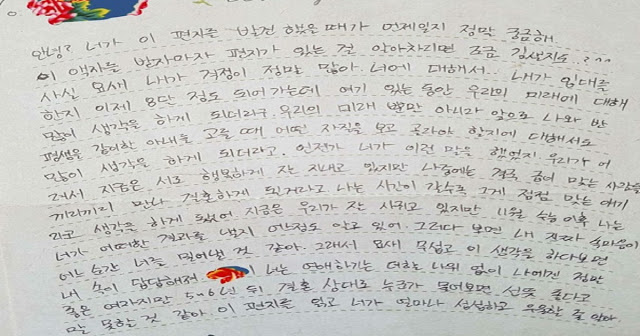 안녕? 너가 이 편지를 발견 했을 때가 언제일지 정말 궁금해
이 액자를 받자마자 편지가 있는 걸 알아차리면 조금 김샐지도..?^^
사실 요새 내가 걱정이 정말 많아. 너에 대해서.. 내가 입대를
한지 이제 8단 정도 되어가는데 여기 있는 동안 우리의 미래에 대해
많이 생각을 하게 되더라구. 우리의 미래 뿐만 아니라 앞으로 나와 반
평생을 함께할 아내를 고를 때 어떤 자질을 보고 골라야 할지에 대해서도
많이 생각을 하게 되더라고. 언젠가 너가 이런 말을 했었지. 우리가 어
려서 지금은 서로 행복하게 잘 지내고 있지만 나중에는 결국 급이 맞는 사람들
끼리끼리 만나 결혼하게 될거라고. 나는 시간이 갈수록 그게 점점 맞는 얘기
라고 생각을 하게 되었어. 지금은 우리가 잘 사귀고 있지만 11월 수능 이후 나는
너가 어떠한 결과를 낼지 어느정도 알고 있어. 그러다 보면 내 진짜 속마음이
어느 순간 너를 밀어낼 것 같아. 그래서 요새 무섭고 이 생각을 하다보면
내 속이 답답해져 이 너는 연애하기는 더할 나위 없이 나에겐 정말
좋은 여자지만 5~6년 뒤 결혼 상대로 누군가 물어보면 선뜻 좋다고
말 못할 것 같아. 이 편지를 읽고 너가 얼마나 섭섭하고 우울할 줄 알아